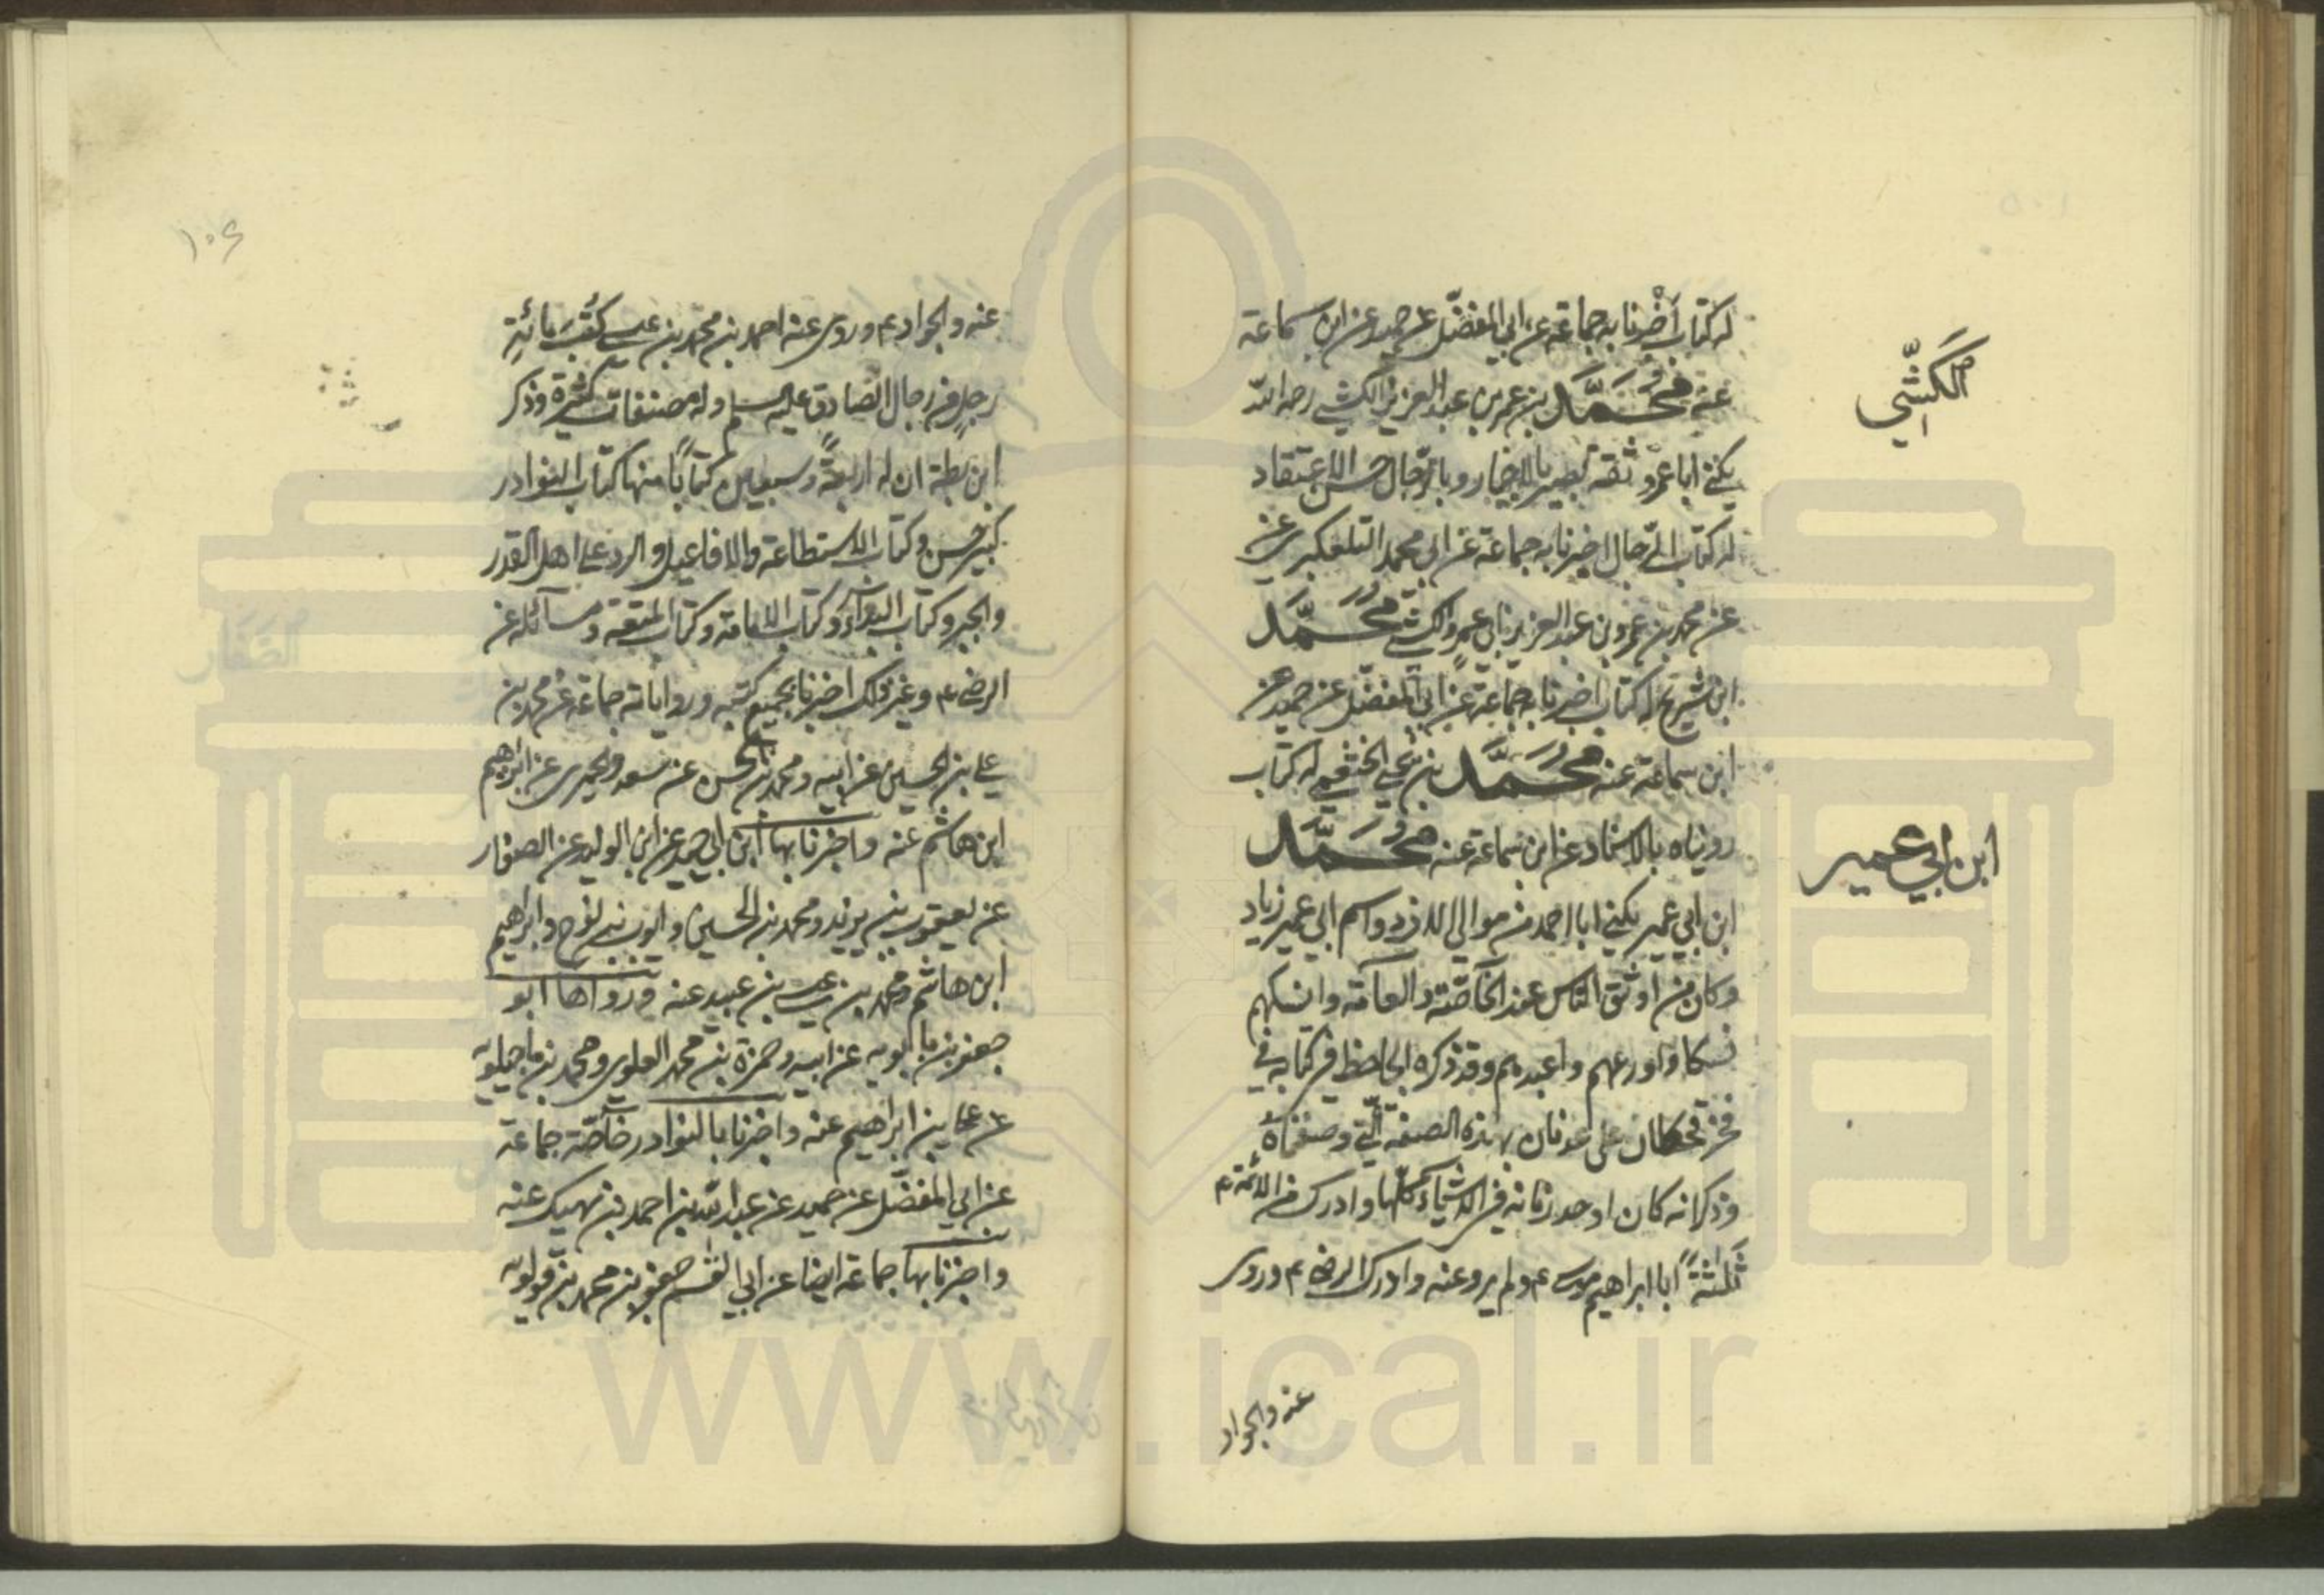 له كتاب أخبرنا به جماعة عن ابي المفضّل عن حميد عن ابن سماعة
عنه محمّد بن عمر بن عبد العزيز الكشي رحمه الله
يكنى ابا عمرو ثقة بصير بالاخبار وبالرّجال حسن الاعتقاد
له كتاب الرّجال اخبرنا به جماعة عن ابي محمد التلعكبري عن
عن محمد بن عمرو بن عبد العزيز ابي عمرو الكشي محمّد
ابن شريح له كتاب اخبرنا به جماعة عن ابي المفضّل عن حميد عن
ابن سماعة عنه محمّد بن علي الخثعمي له كتاب
رويناه بالاسناد عن ابن سماعة عنه محمّد
ابن ابي عمير يكنى ابا احمد من موالي الازد واسم ابي عمير زياد
وكان من اوثق الناس عند الخاصّة والعامّة وانسكهم
نسكا واورعهم واعبدهم وقد ذكره الجاحظ في كتابه في
فخر قحطان على عدنان بهذه الصفة الّتي وصفناه
وذكر انه كان اوحد زمانه في الاشياء كلّها وادرك من الائمة ع
ثلثةً ابا ابراهيم موسى ع ولم يرو عنه وادرك الرضا ع وروى
عنه والجواد
الكشّي
ابن ابي عمير
۱۰۶
عنه والجواد ع وروى عنه احمد بن محمّد بن عيسى كتب مائة
رجل من رجال الصادق عليه السلم وله مصنفات كثيرة وذكر
ابن بطة ان له اربعةً وسبعين كتاباً منها كتاب النوادر
كبير حسن وكتاب الاستطاعة والافاعيل والرد على اهل القدر
والجبر وكتاب البداء وكتاب الامامة وكتاب المتعة ومسائله عن
الرضا ع وغير ذلك اخبرنا بجميع كتبه ورواياته جماعة عن محمد بن
علي بن الحسين عن ابيه ومحمد بن الحسن عن سعد والحميري عن ابراهيم
ابن هاشم عنه واخبرنا بها ابن ابي جيد عن ابن الوليد عن الصفار
عن يعقوب بن يزيد ومحمد بن الحسين وايوب بن نوح وابراهيم
ابن هاشم ومحمد بن عيسى بن عبيد عنه ورواها ابو
جعفر بن بابويه عن ابيه وحمزة بن محمد العلوي ومحمد بن ماجيلويه
عن علي بن ابراهيم عنه واخبرنا بالنوادر خاصّة جماعة
عن ابي المفضّل عن حميد عن عبد الله بن احمد بن نهيك عنه
واخبرنا بها جماعة ايضا عن ابي القسم جعفر بن محمد بن قولويه
www.ical.ir